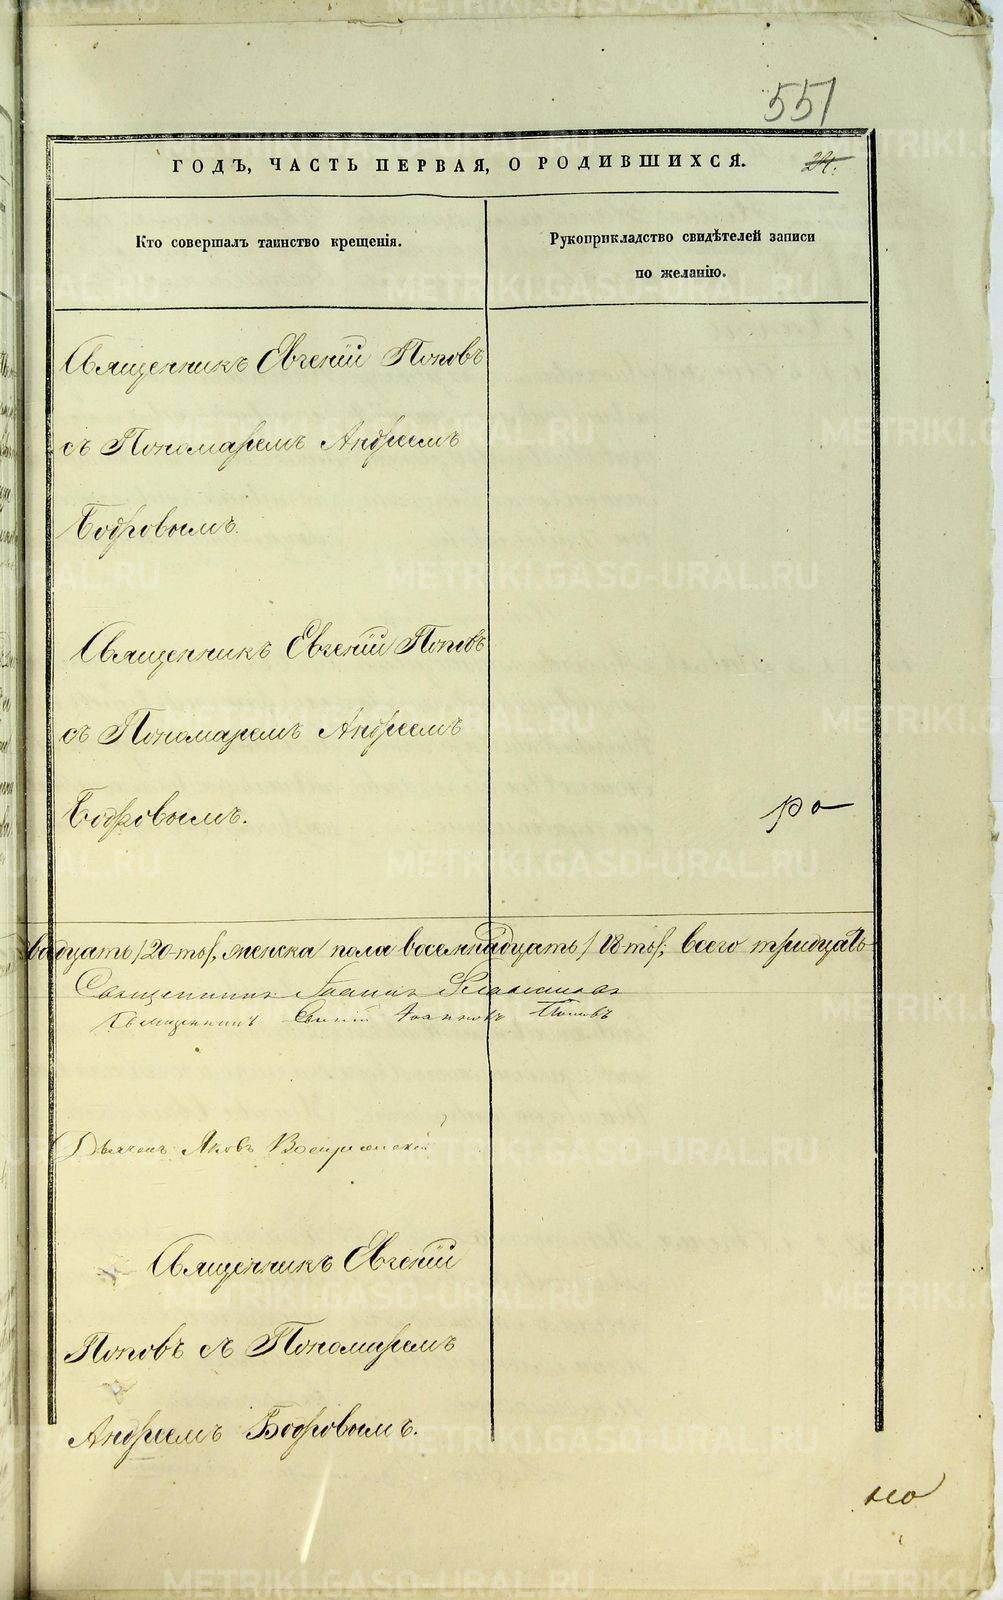 551
ГОДЪ, ЧАСТЬ ПЕРВАЯ, О РОДИВШИХСЯ. 24.
Кто совершалъ таинство крещенія.
Рукоприкладство свидѣтелей записи
по желанію.
Священникъ Евгеній Поповъ
съ Пономаремъ Андреемъ
Бодровымъ.
Священникъ Евгеній Поповъ
съ Пономаремъ Андреемъ
Бодровымъ.
ро
вадцать /20-ть/, женска пола восемнадцать / 18 ть/; всего тридцать
Священникъ Іоаннъ
Священникъ Поповъ
Яковъ
Священникъ Евгеній
Поповъ съ Пономаремъ
Андреемъ Бодровымъ.
но
METRIKI.GASO-URAL.RU